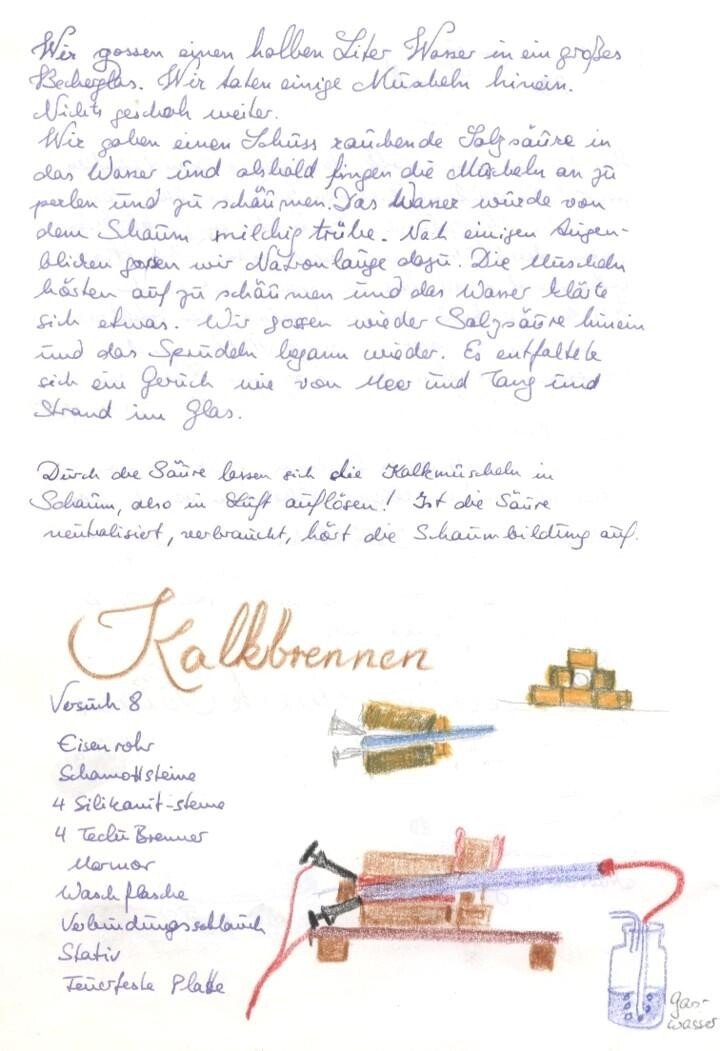 Wir gossen einen halben Liter Wasser in ein großes
Becherglas. Wir taten einige Muscheln hinein.
Nichts geschah weiter.
Wir gaben einen Schuss rauchende Salzsäure in
das Wasser und alsbald fingen die Muscheln an zu
perlen und zu schäumen. Das Wasser wurde von
dem Schaum milchig trübe. Nach einigen Augen-
blicken gossen wir Natronlauge dazu. Die Muscheln
hörten auf zu schäumen und das Wasser klärte
sich etwas. Wir gossen wieder Salzsäure hinein
und das Sprudeln begann wieder. Es entfaltete
sich ein Geruch wie von Meer und Tang und
Strand im Glas.
Durch die Säure lassen sich die Kalkmuscheln in
Schaum, also in Luft auflösen! Ist die Säure
neutralisiert, verbraucht, hört die Schaumbildung auf.
Kalkbrennen
Versuch 8
Eisenrohr
Schamottsteine
4 Silikanit-steine
4 Teclu Brenner
Marmor
Waschflasche
Verbindungsschlauch
Stativ
Feuerfeste Platte
gas-
wasser